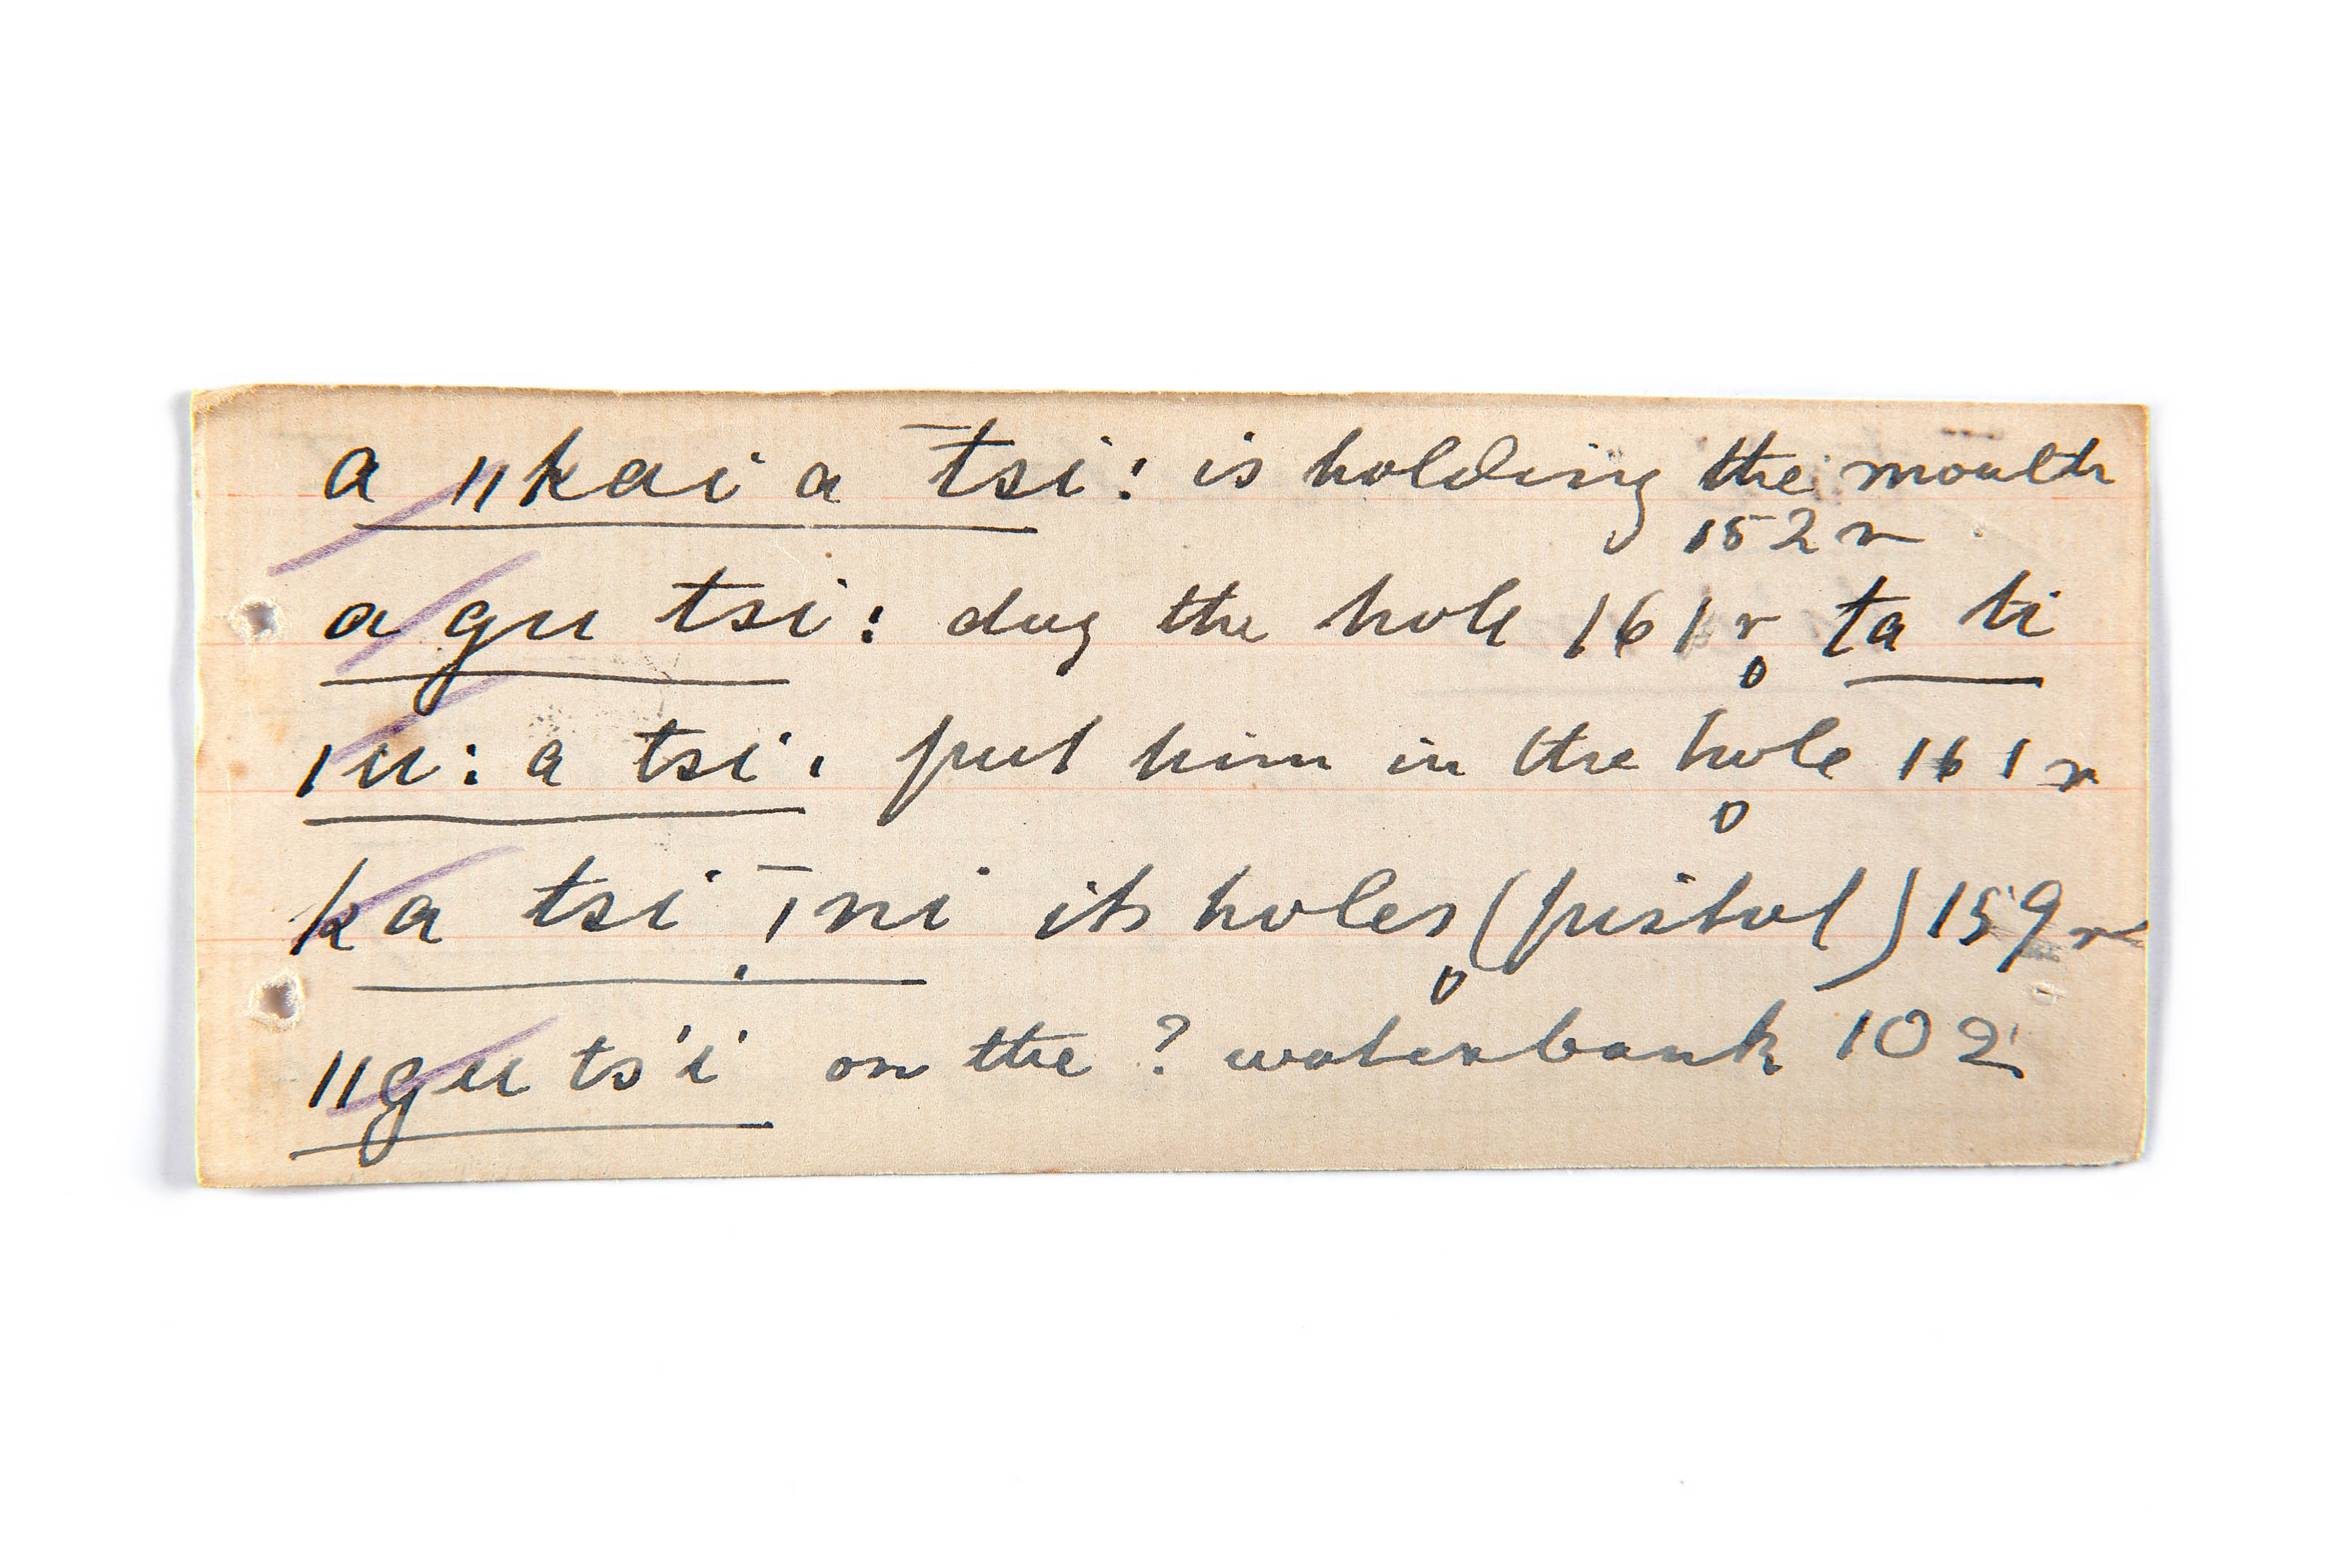 a ǁkai a t̄si: is holding the mouth
152 r
a gu tsi: dug the hole 161 r ta ti
ǀu: a tsi: put him in the hole 161 r
ka tsi ǀni its holes (pistol) 159 r
ǁgu ts'i on the ? waterbank 102